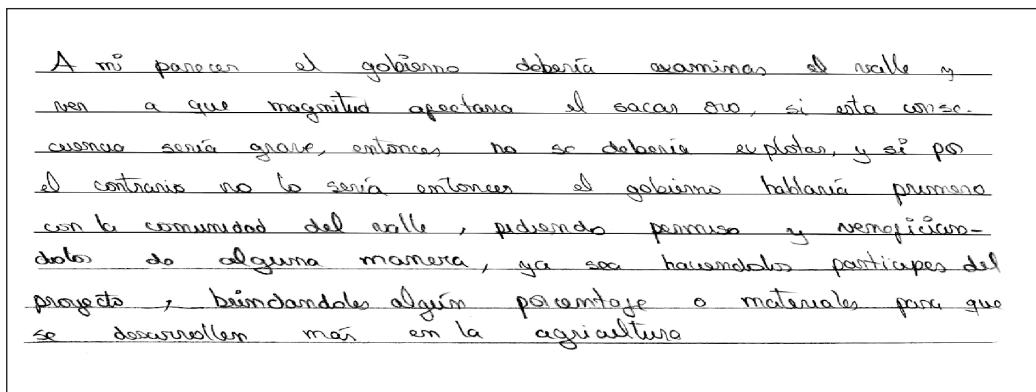 A mi parecer el gobierno debería examinar el valle y
ver a que magnitud afectaria el sacar oro, si esta conse-
cuencia sería grave, entonces no se debería explotar, y si por
el contrario no lo sería entonces el gobierno hablaría primero
con la comunidad del valle, pidiendo permiso y venefician-
dolos de alguna manera, ya sea haciendolos participes del
proyecto, brindandoles algún porcentaje o materiales para que
se desarrollen más en la agricultura